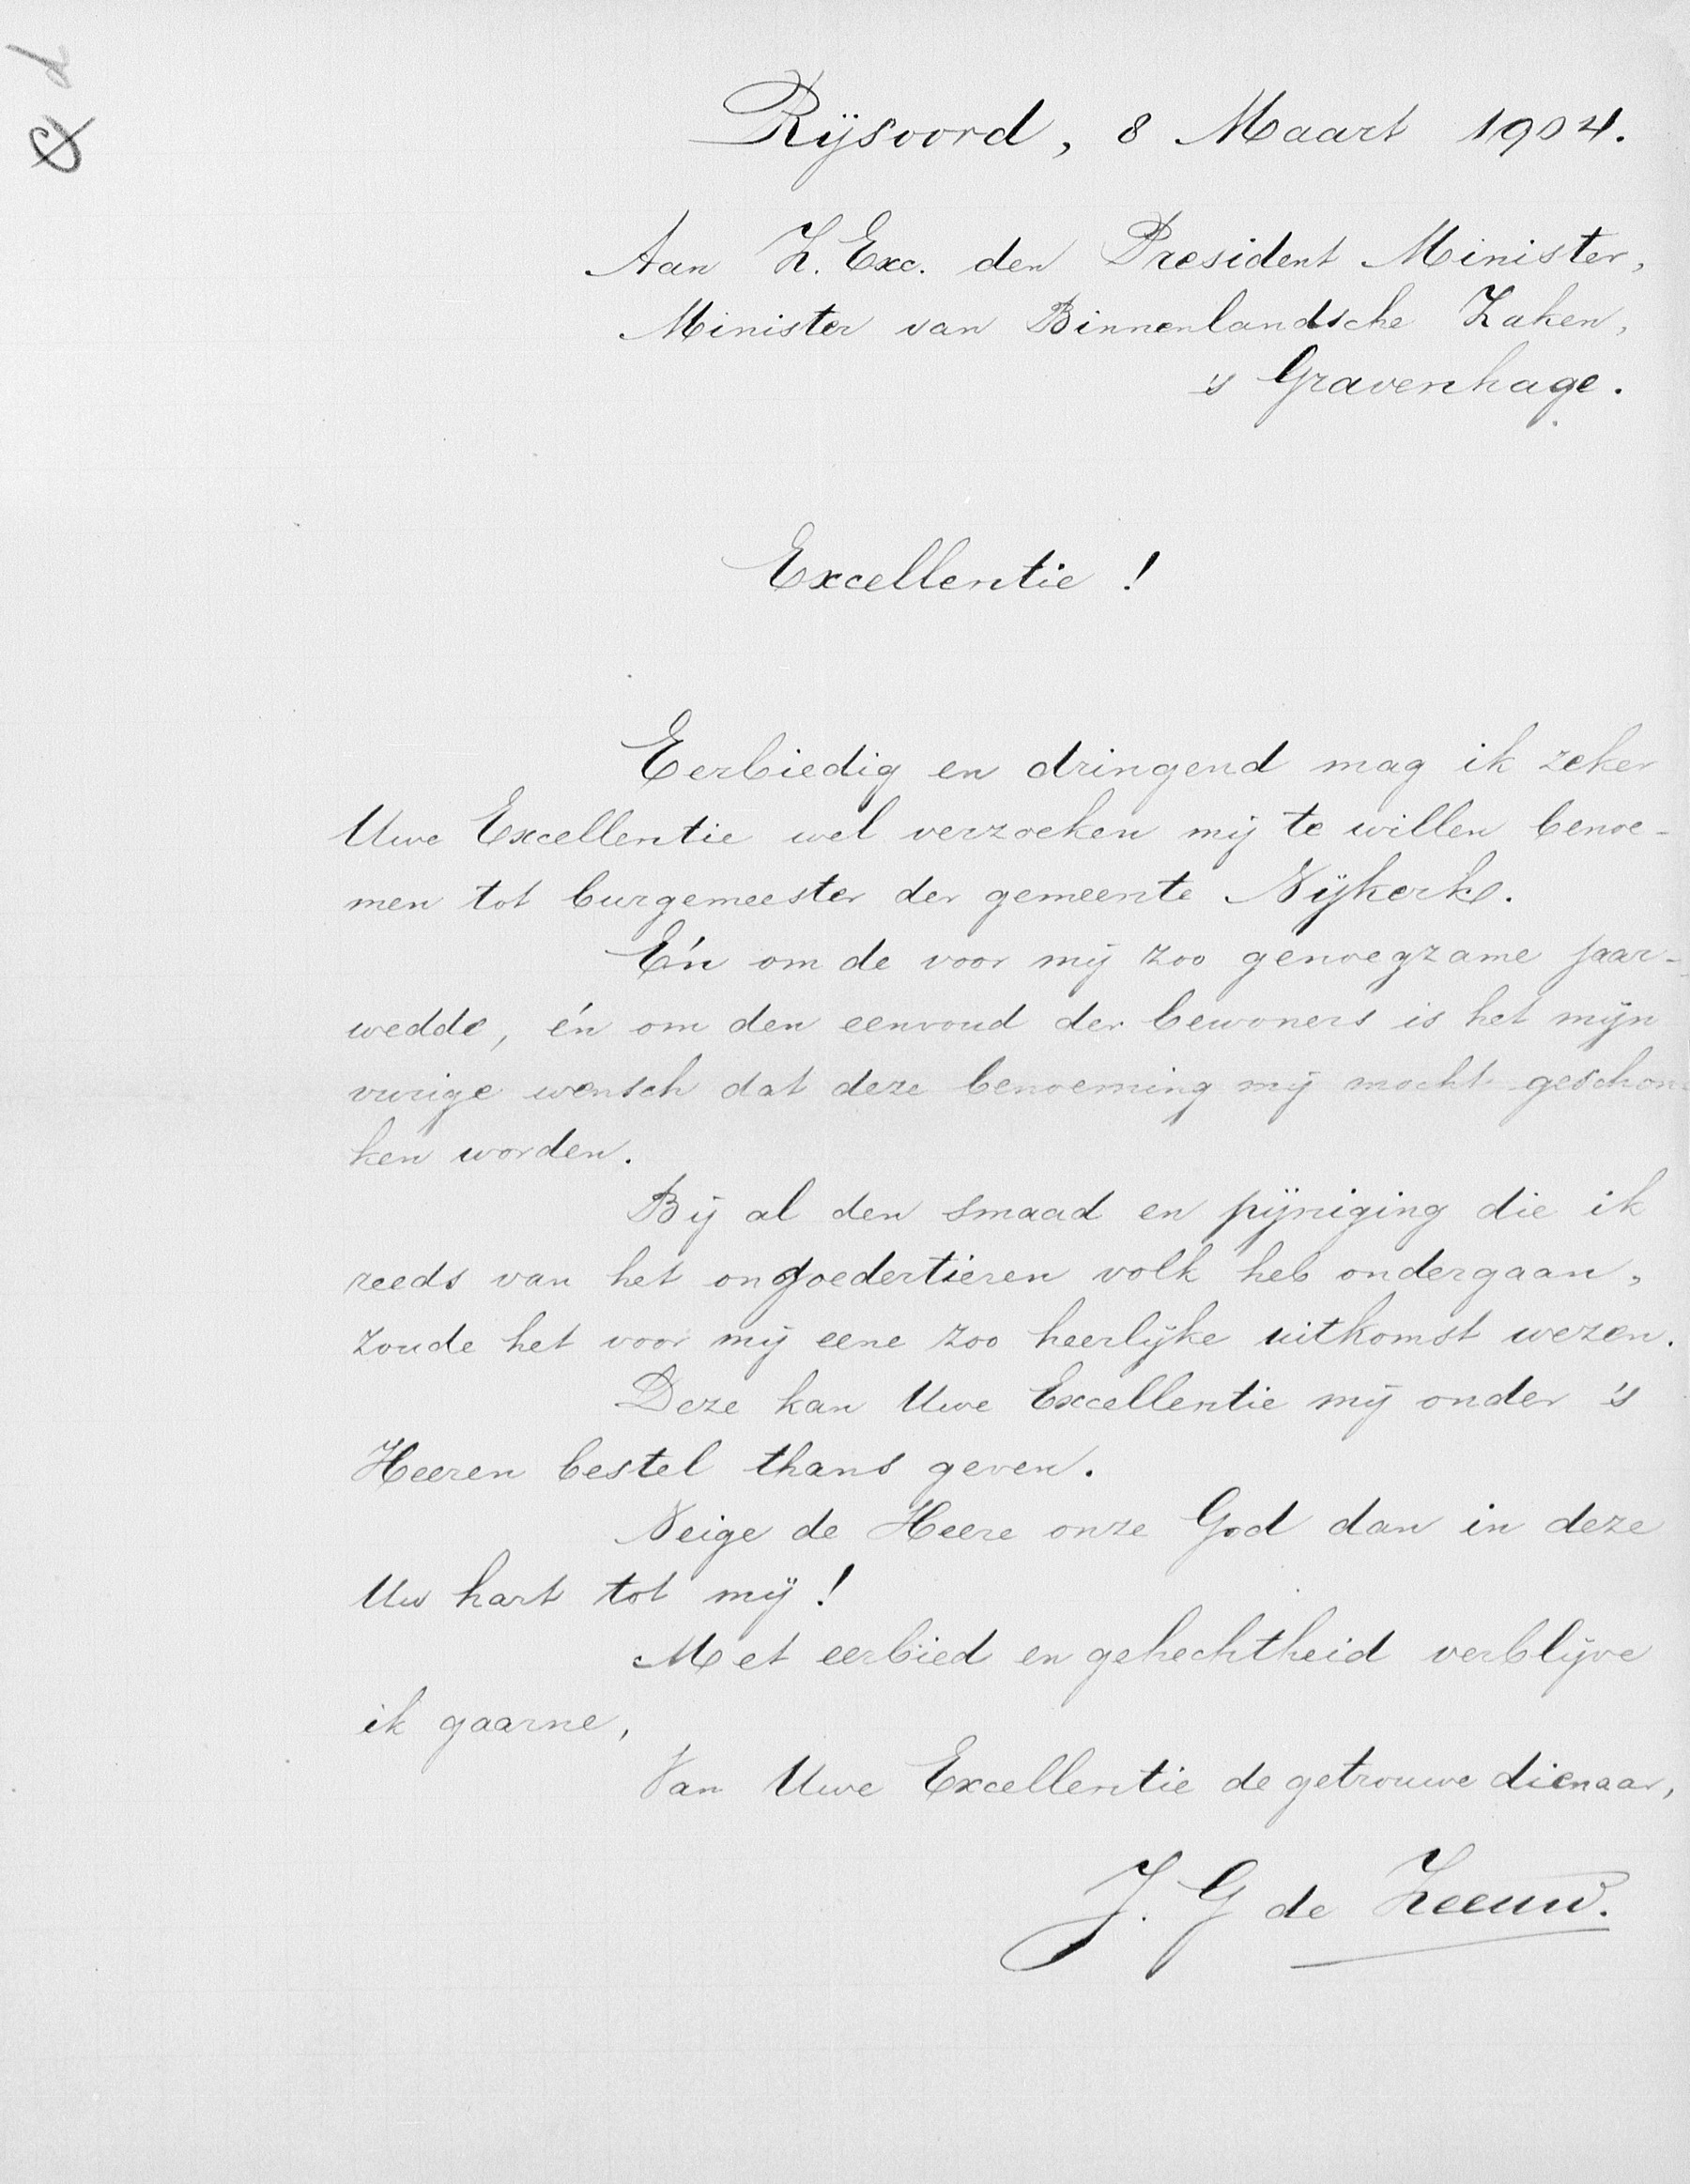 Rijsoord, 8 Maart 1904.
Aan Z. Exc. den President Minister,
Minister van Binnenlandsche Zaken,
's Gravenhage.
Excellentie !
Eerbiedig en dringend mag ik zeker
Uwe Excellentie wel verzoeken mij te willen benoe-
men tot burgemeester der gemeente Nijkerk.
Én om de voor mij zoo genoegzame jaar-
wedde, én om den eenvoud der bewoners is het mijn
vurige wensch dat deze benoeming mij mocht geschon-
ken worden.
Bij al den smaad en pijniging die ik
reeds van het ongoedertieren volk heb ondergaan,
zoude het voor mij eene zoo heerlijke uitkomst wezen.
Deze kan Uwe Excellentie mij onder 's
Heeren bestel thans geven.
Neige de Heere onze God dan in deze
Uw hart tot mij !
Met eerbied en gehechtheid verblijve
ik gaarne,
Van Uwe Excellentie de getrouwe dienaar,
J. G de Zeeuw.